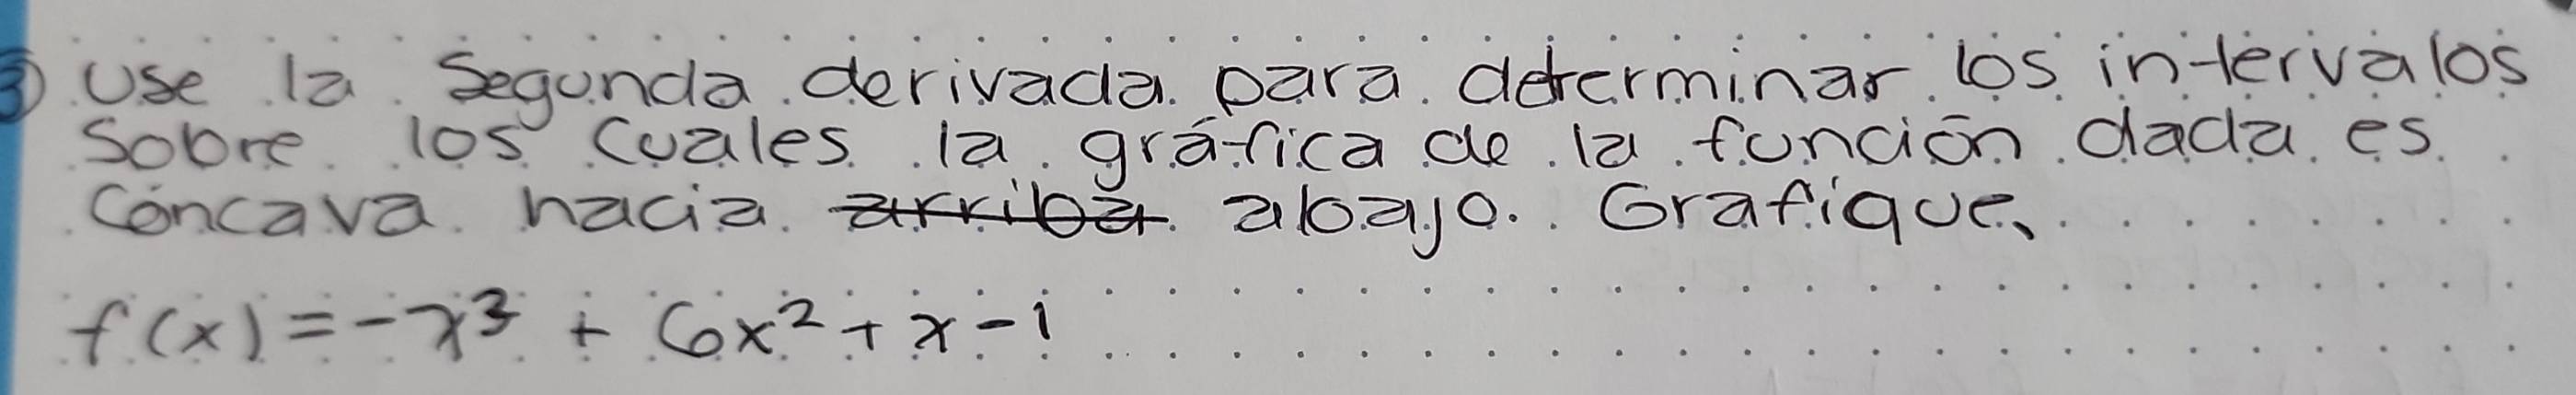 ③ Use la segunda derivada para determinar los intervalos
sobre los cuales la gráfica de la función dada es
cóncava hacia arriba abajo. Grafique.
f(x) = -x³ + 6x² + x - 1